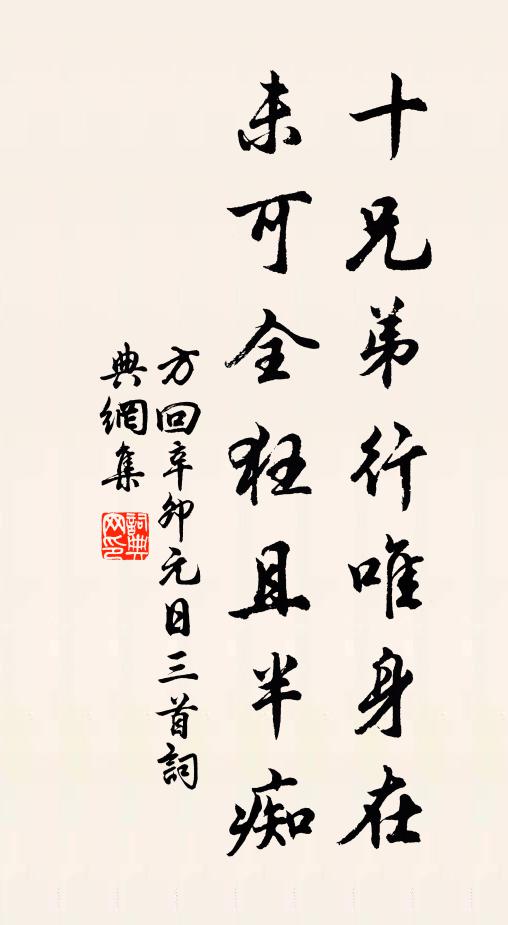 十兄弟行唯身在
未可全狂且半痴
方回辛卯元日三首詞
典網集
詞典
网印